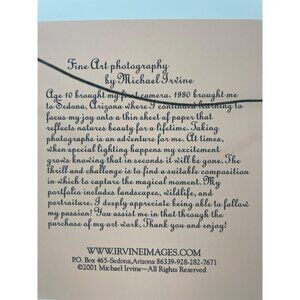 Fine Art photography
by Michael Irvine
Age 10 brought my first camera. 1980 brought me
to Sedona, Arizona where I continued learning to
focus my joy onto a thin sheet of paper that
reflects natures beauty for a lifetime. Taking
photographs is an adventure for me. At times,
when special lighting happens my excitement
grows knowing that in seconds it will be gone. The
thrill and challenge is to find a suitable composition
in which to capture the magical moment. My
portfolio includes landscapes, wildlife, and
portraiture. I deeply appreciate being able to follow
my passion! You assist me in that through the
purchase of my art work, Thank you and enjoy!
WWW.IRVINEIMAGES.COM
P.O. Box 465-Sedona, Arizona 86339-928-282-7671
©2001 Michael Irvine—All Rights Reserved